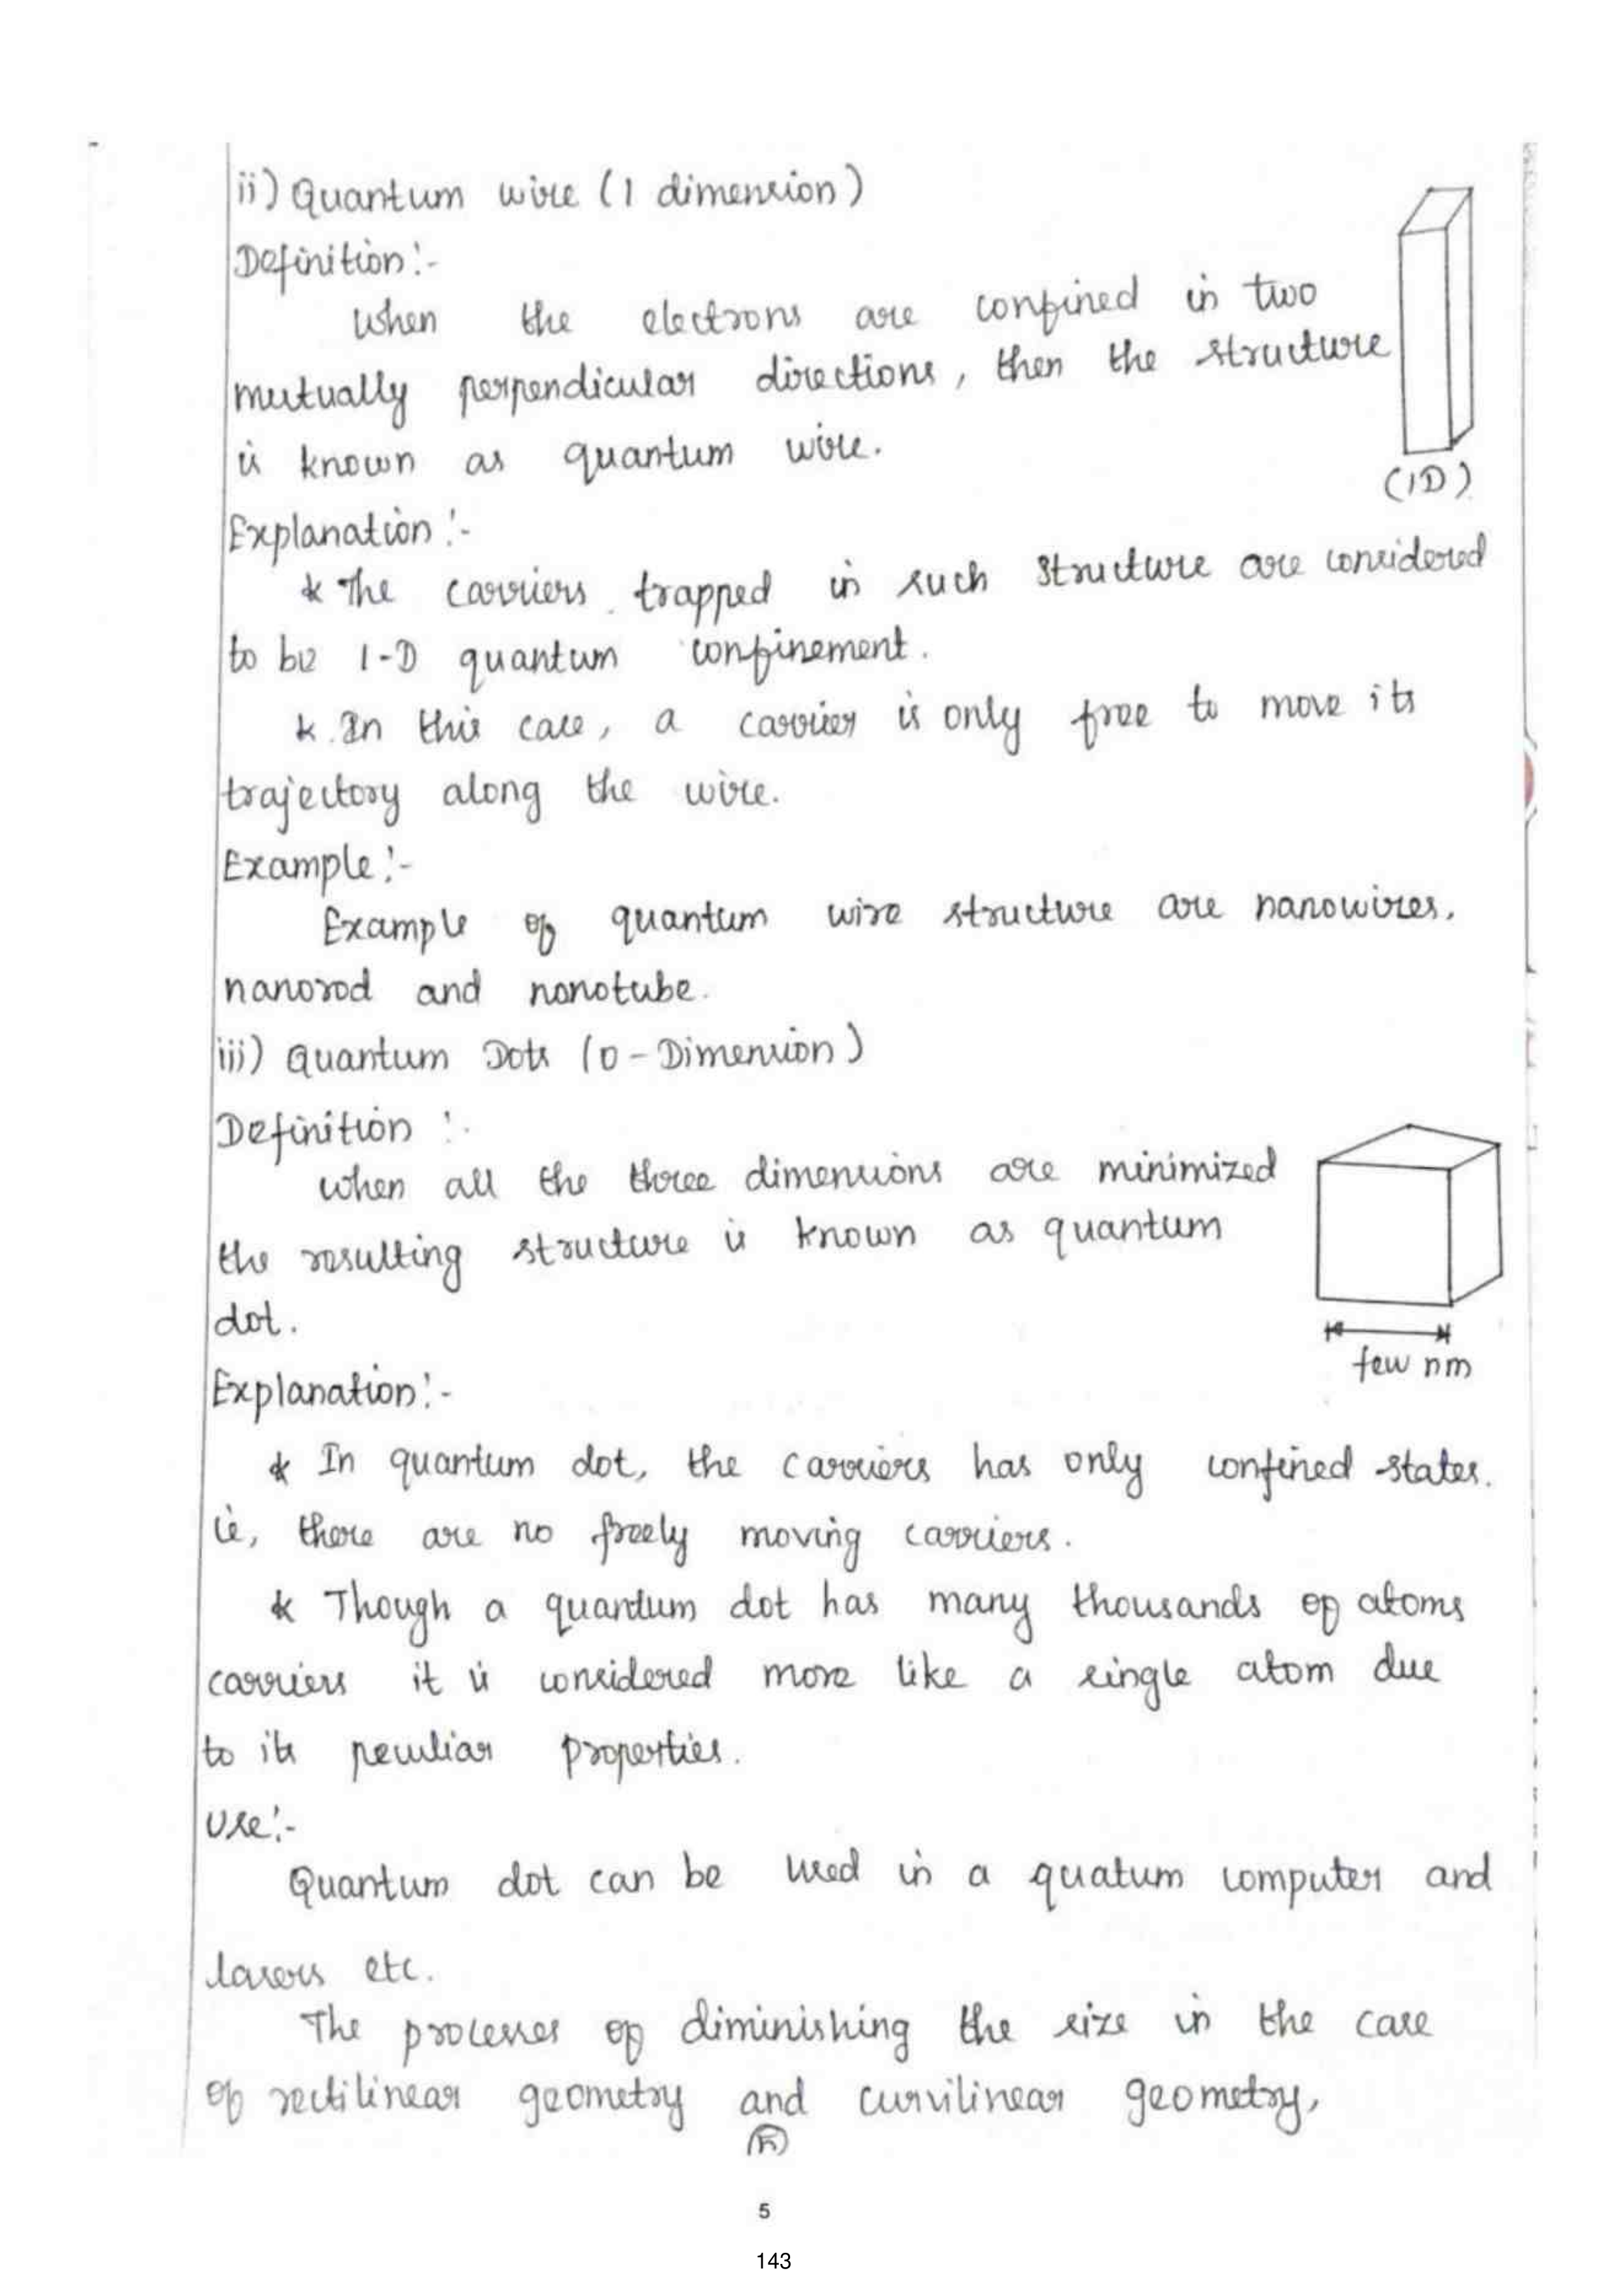 ii) Quantum wire (1 dimension)
Definition:-
When the electrons are confined in two
mutually perpendicular directions, then the structure
is known as quantum wire.
(1D)
Explanation:-
* The carriers trapped in such structure are considered
to be 1-D quantum confinement.
* In this case, a carrier is only free to move its
trajectory along the wire.
Example:-
Example of quantum wire structure are nanowires,
nanorod and nonotube.
iii) Quantum Dots (0-Dimension)
Definition :-
When all the three dimensions are minimized
the resulting structure is known as quantum
dot.
few nm
Explanation:-
* In quantum dot, the carriers has only confined states.
ie, there are no freely moving carriers.
* Though a quantum dot has many thousands of atoms
carriers it is considered more like a single atom due
to its peculiar properties.
Use:-
Quantum dot can be used in a quatum computer and
lasers etc.
The processes of diminishing the size in the case
of rectilinear geometry and curvilinear geometry,
5
143